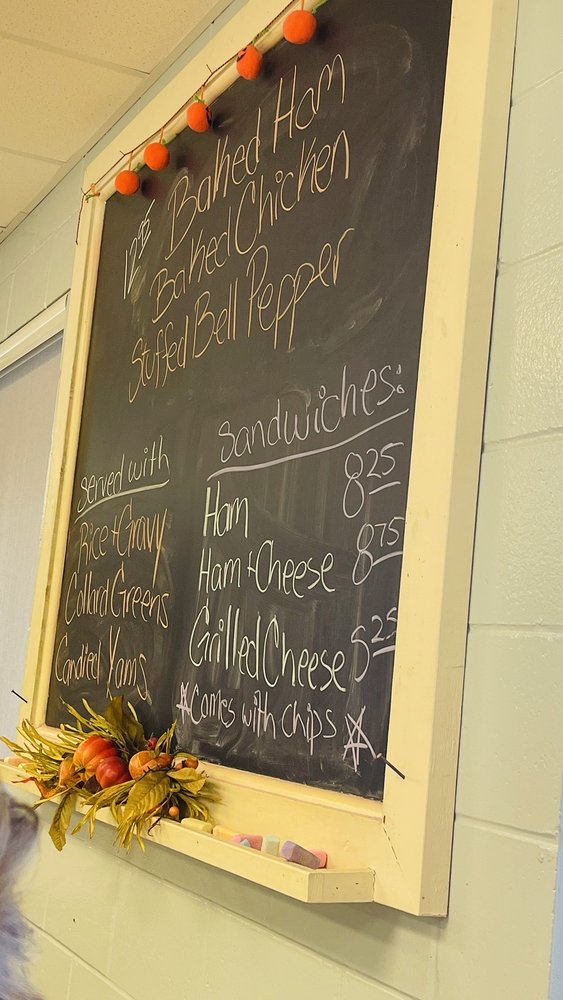 Baked Ham
Baked Chicken
Stuffed Bell Pepper
Served with
Rice + Gravy
Collard Greens
Candied Yams
Sandwiches:
Ham 8 25
Ham + Cheese 8 75
Grilled Cheese 5 25
☆Comes with chips☆